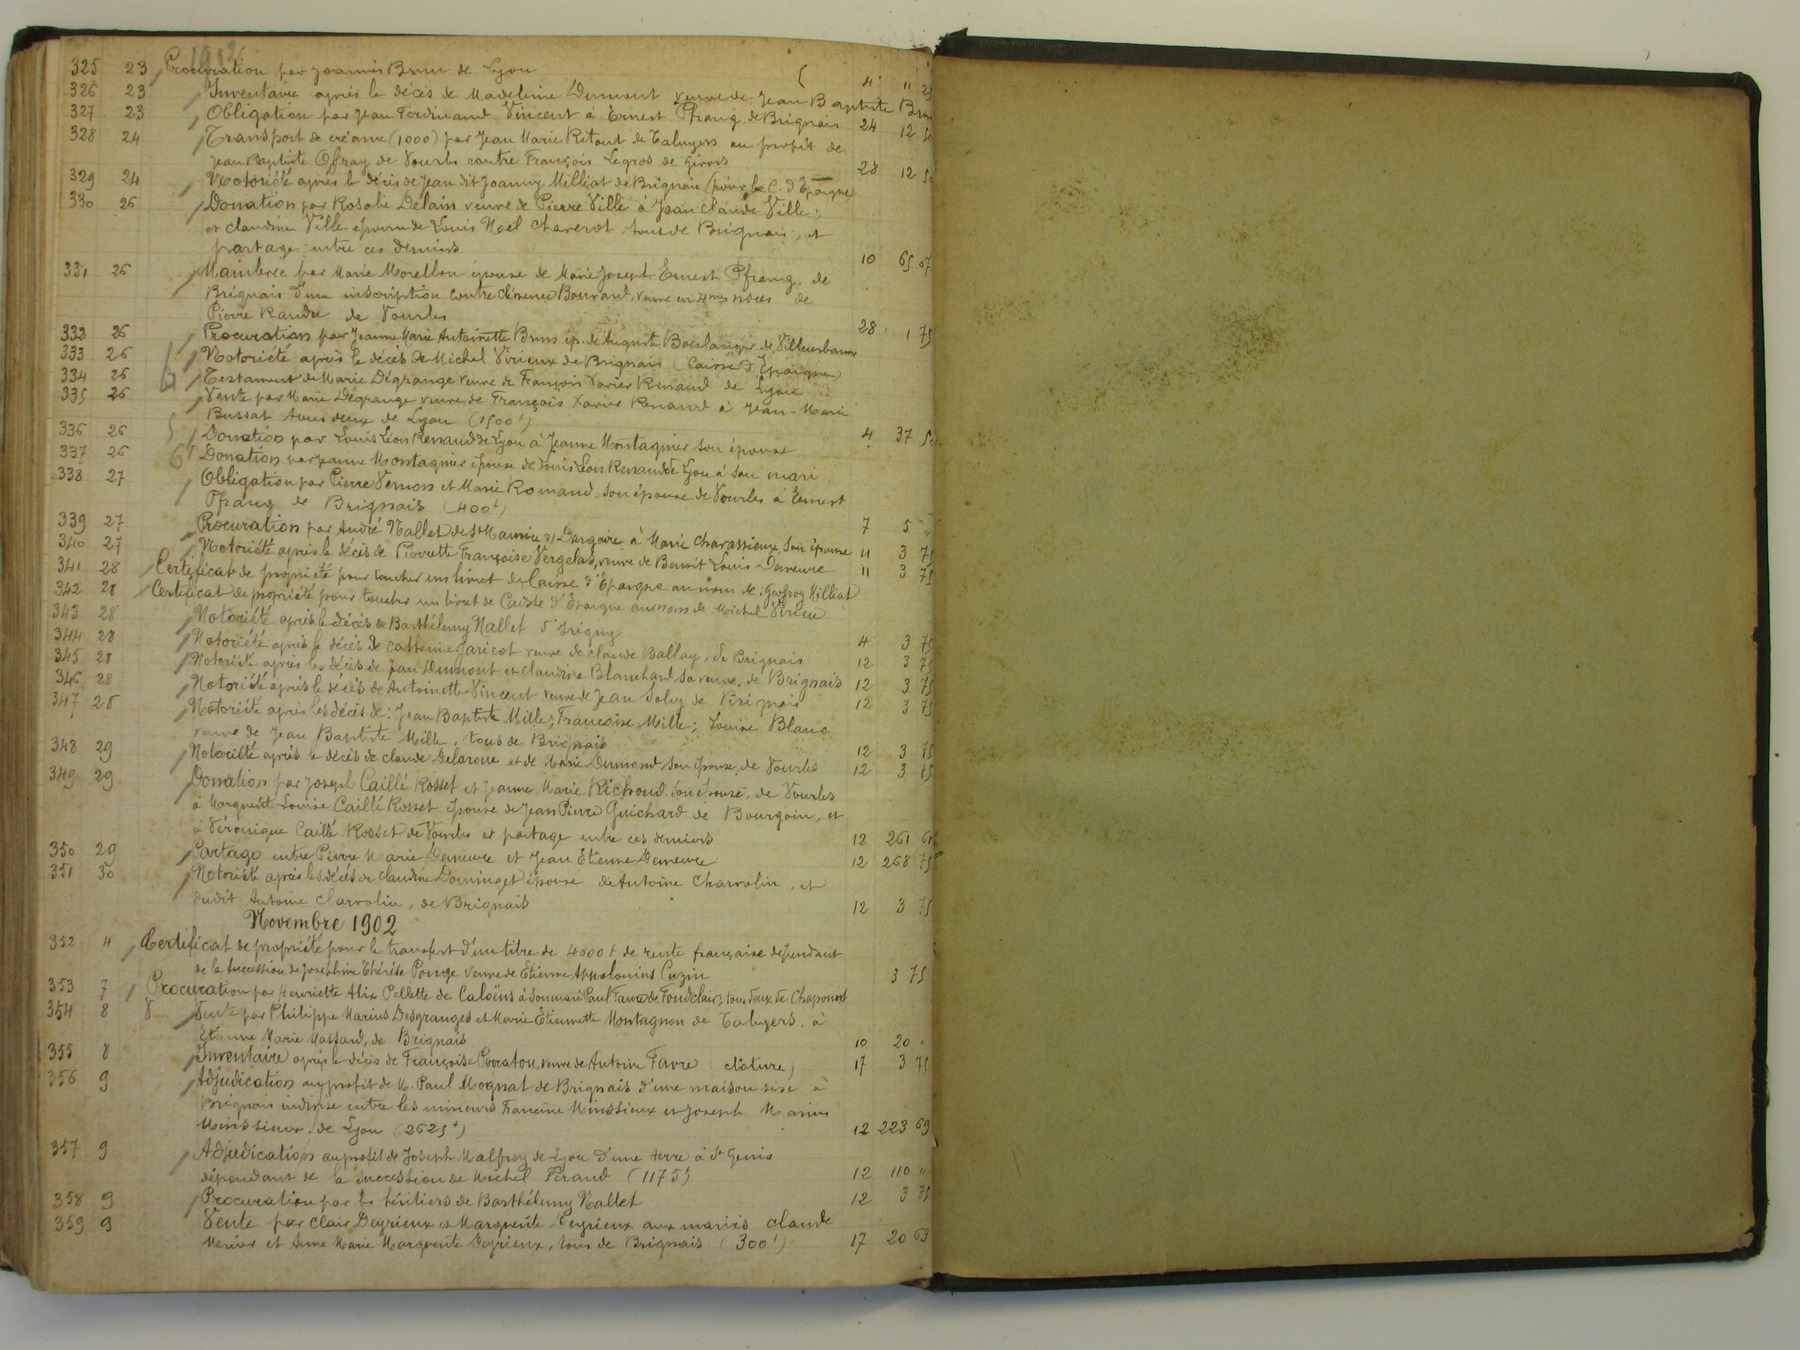 1902
325 23 Procuration par Joannès Brun de Lyon
326 23 Inventaire après le décès de Madeleine Dumont veuve de Jean Baptiste Brun 4 11 25
327 23 Obligation par Jean Ferdinand Vincent à Ernest Pfrang de Brignais 24 12 50
328 24 Transport de créance (1000) par Jean Marie Ritout de Taluyers au profit de
Jean Baptiste Offray de Vourles contre François Legros de Givors 28 12 50
329 24 Notoriété après le décès de Jean dit Joanny Milliat de Brignais (pour la C. d'Epargne)
330 26 Donation par Rosalie Delain veuve de Pierre Ville à Jean Claude Ville;
et Claudine Ville épouse de Louis Noël Chaverot, tous de Brignais, et
partage entre ces derniers 10 65 07
331 26 Mainlevée par Marie Morellon épouse de Marie Joseph Ernest Pfrang, de
Brignais d'une inscription contre Clémence Bouvard, veuve en 2mes noces de
Pierre Randu de Vourles 28 1 75
332 26 Procuration par Jeanne Marie Antoinette Brun ép. de Auguste Boulanger de Villeurbanne
333 26 Notoriété après le décès de Michel Virieux de Brignais (Caisse d'Epargne)
334 26 Testament de Marie Dégrange veuve de François Xavier Renaud de Lyon
335 26 Vente par Marie Dégrange veuve de François Xavier Renaud à Jean-Marie
Bussat tous deux de Lyon (1500f) 4 37 50
336 26 Donation par Louis Léon Renaud de Lyon à Jeanne Montagnier son épouse
337 26 Donation par Jeanne Montagnier épouse de Louis Léon Renaud de Lyon à son mari
338 27 Obligation par Pierre Vernon et Marie Romand, son épouse de Vourles à Ernest
Pfrang de Brignais (400f) 7 5 "
339 27 Procuration par André Nallet de St Maurice s/ Dargoire à Marie Charassieux, son épouse 11 3 75
340 27 Notoriété après le décès de Pierrette Françoise Vergelas, veuve de Benoît Louis Demeure 11 3 75
341 28 Certificat de propriété pour toucher un livret de Caisse d'Epargne au nom de: Geofroy Milliat
342 28 Certificat de propriété pour toucher un livret de Caisse d'Epargne au nom de Michel Virieu
343 28 Notoriété après le décès de Barthélemy Nallet d'Irigny 4 3 75
344 28 Notoriété après le décès de Catherine Jaricot veuve de Claude Ballay, de Brignais 12 3 75
345 28 Notoriété après les décès de Jean Dumont et Claudine Blanchard sa veuve, de Brignais 12 3 75
346 28 Notoriété après le décès de Antoinette Vincent veuve de Jean Soluy de Brignais 12 3 75
347 28 Notoriété après les décès de: Jean Baptiste Mille; Françoise Mille; Louise Blanc
veuve de Jean Baptiste Mille, tous de Brignais 12 3 75
348 29 Notoriété après le décès de Claude Delaroue et de Marie Dumond son épouse, de Vourles 12 3 75
349 29 Donation par Joseph Caillé Rosset et Jeanne Marie Richoud son épouse, de Vourles
à Marguerite Louise Caillé Rosset épouse de Jean Pierre Guichard de Bourgoin, et
à Véronique Caillé Rosset de Vourles et partage entre ces derniers 12 261 61
350 29 Partage entre Pierre Marie Demeure et Jean Étienne Demeure 12 268 75
351 30 Notoriété après les décès de Claudine Dominget épouse de Antoine Charvolin, et
dudit Antoine Charvolin, de Brignais 12 3 75
Novembre 1902
352 4 Certificat de propriété pour le transfert d'un titre de 4000f de rente française dépendant
de la succession de Joséphine Thérèse Ponge veuve de Etienne Appolonius Cuzin 3 75
353 7 Procuration par Henriette Alix Pellette de Caloëns à son mari Paul Favre de Fondclair, tous deux de Chaponost
354 8 Vente par Philippe Marius Desgranges et Marie Etiennette Montagnon de Taluyers, à
Etienne Marie Massard, de Brignais 10 20 "
355 8 Inventaire après le décès de Françoise Poraton, veuve de Antoine Favre (clôture) 17 3 75
356 9 Adjudication au profit de M. Paul Mognat de Brignais d'une maison sise à
Brignais indivise entre les mineurs Francine Minssieux et Joseph Marius
Minssieux, de Lyon (2625f) 12 223 69
357 9 Adjudication au profit de Joseph Malfroy de Lyon d'une terre à St Genis
dépendant de la succession de Michel Feraud (1175f) 12 110 "
358 9 Procuration par les héritiers de Barthélemy Nallet 12 3 75
359 9 Vente par Clair Deyrieux et Marguerite Deyrieux aux mariés Claude
Mercier et Anne Marie Marguerite Deyrieux, tous de Brignais (300f) 17 20 63